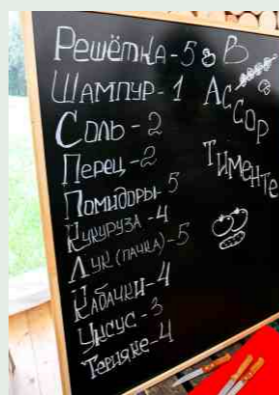 Решётка-5
Шампур-1
Соль-2
Перец-2
Помидоры-5
Кукуруза-4
Лук (пачка)-5
Кабачки-4
Уксус-3
Терияке-4
В
Ас
сор
Тименте